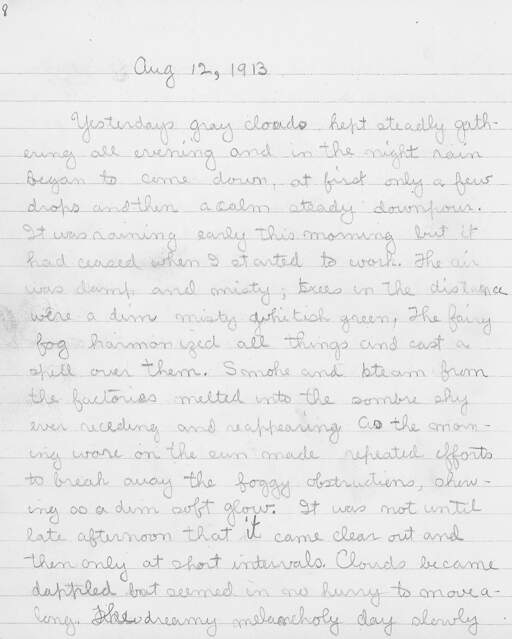 8
Aug 12, 1913
Yesterdays gray clouds kept steadly gath-
ering all evening and in the night rain
began to come down, at first only a few
drops and then a calm steady downpour.
It was raining early this morning but it
had ceased when I started to work. The air
was damp and misty; trees in the distance
were a dim misty whitish green, The fairy
fog harmonized all things and cast a
spill over them. Smoke and steam from
the factories melted into the sombre sky
ever receding and reappearing As the morn-
ing wore on the sun made repeated efforts
to break away the foggy obstructions, show-
ing as a dim soft glow. It was not until
late afternoon that it came clear out and
then only at short intervals. Clouds became
dappled but seemed in no hurry to move a-
long. The dreamy melancholy day slowly